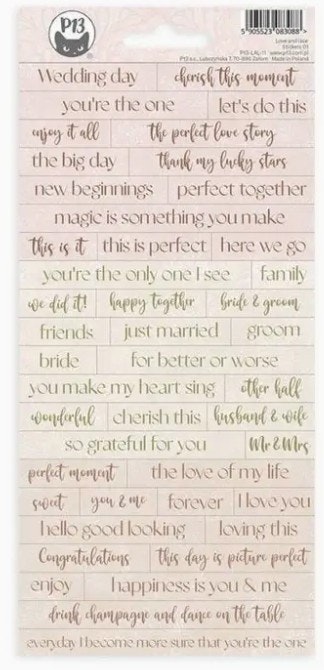 P13
5 905523 083088 >
Love and lace
stickers 01
P13-LAL-11 www.p13.com.pl
P13 s.c. Made in Poland
Wedding day cherish this moment
you're the one let's do this
enjoy it all the perfect love story
the big day thank my lucky stars
new beginnings perfect together
magic is something you make
this is it this is perfect here we go
you're the only one I see family
we did it! happy together bride & groom
friends just married groom
bride for better or worse
you make my heart sing other half
wonderful cherish this husband & wife
so grateful for you Mr & Mrs
perfect moment the love of my life
sweet you & me forever I love you
hello good looking loving this
Congratulations this day is picture perfect
enjoy happiness is you & me
drink champagne and dance on the table
everyday I become more sure that you're the one